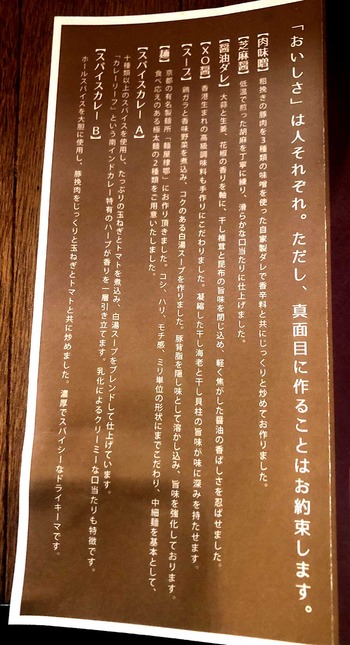 「おいしさ」は人それぞれ。ただし、真面目に作ることはお約束します。
【肉味噌】粗挽きの豚肉を3種類の味噌を使った自家製ダレで香辛料と共にじっくりと炒めてお作りしました。
【芝麻醤】低温で煎った胡麻を丁寧に練り、滑らかな口当たりに仕上げました。
【醤油ダレ】大蒜と生姜、花椒の香りを軸に、干し椎茸と昆布の旨味を閉じ込め、軽く焦がした醤油の香ばしさを忍ばせました。
【XO醤】香港生まれの高級調味料も手作りにこだわりました。凝縮した干し海老と干し貝柱の旨味が味に深みを持たせます。
【スープ】鶏ガラと香味野菜を煮込み、コクのある白湯スープを作りました。豚背脂を隠し味として溶かし込み、旨味を強化しております。
【麺】京都の有名製麺所「麺屋棣鄂」にお作り頂きました。コシ、ハリ、モチ感、ミリ単位の形状にまでこだわり、中細麺を基本として、
食べ応えのある極太麺の2種類をご用意いたしました。
【スパイスカレー A】
十種類以上のスパイスを使用し、たっぷりの玉ねぎとトマトを煮込み、白湯スープをブレンドして仕上げています。
「カレーリーフ」という南インドカレー特有のハーブが香りを一層引き立てます。乳化によるクリーミーな口当たりも特徴です。
【スパイスカレー B】
ホールスパイスを大胆に使用し、豚挽肉をじっくりと玉ねぎとトマトと共に炒めました。濃厚でスパイシーなドライキーマです。